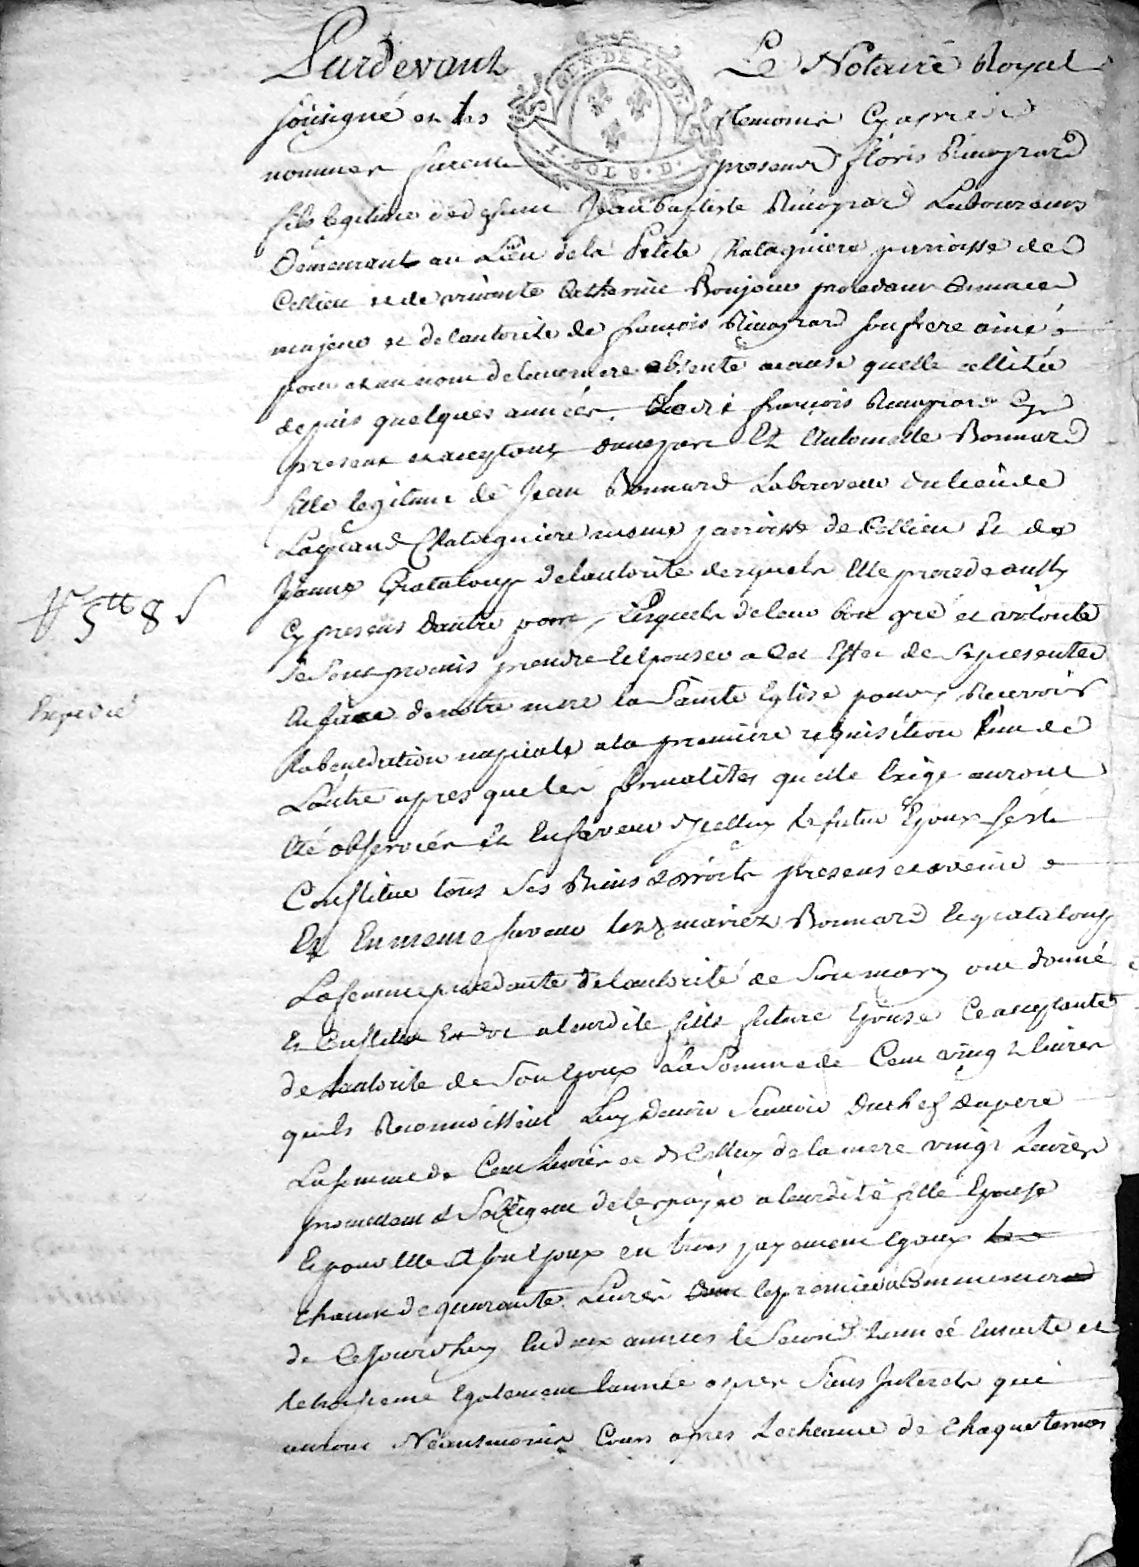 Pardevant Le Notaire Royal
GEN. DE LYON
1. SOL 8. D.
soûsigné et les temoins cy apres
nommes furent presens floris
fils legitime de deffunt Jean baptiste Laboureurs
Demeurant au Lieu de la Petite Chataigniere parroisse de
Cellieu et de vivante Catherine Bonjour procedant comme
majeur et de lautorité de françois son frere ainé
pour et au nom de la mere absente acause quelle allitée
depuis quelques années. Ledit françois cy
present et acceptant dune part Et Antoinette Bonnard
fille legitime de Jean Bonnard Laboureur du lieu de
Lagrand Chataigniere meme parroisse de Cellieu Et de
Jeanne Grataloup de lautorité desquels Elle procede aussy
cy presens Dautre part, Lesquels de leur bon gré et volonté
se sont promis prendre et Epouser a Cet Effet de se presenter
En face de notre mere la Sainte Eglise pour y Recevoir
la benediction nuptiale a la premiere requisition L'un de
L'autre apres que les formalites quelle Exige auront
Eté observées Et En faveur dycelluy le futur Epoux sest
Constitue tous ses Biens & droits presens et avenir
Et En meme faveur les mariez Bonnard et grataloup
La femme procedante de lautorité de Son mary ont donné
Et Constitué En dot a leurdite fille future Epouse Ce acceptante
de lautorité de Son Epoux La Somme de Cent vingt livres
quils Reconnoissent Luy devoir Scavoir du Chef du pere
La somme de Cent livres et de Celluy de la mere vingt Livres
promettent et Sobligent de les payer a leurdite fille Epouse
Et pour Elle a son Epoux en trois payemens Egaux
chacun de quarante Livres le premier a Commencer
de Cejourdhuy En deux annees le Second Lannée Ensuite et
le troisieme Egalement lannée apres Sans Interets qui
auront Neansmoins Cours apres Lecheance de Chaque terme
5 ₶ 8 s
Expedié